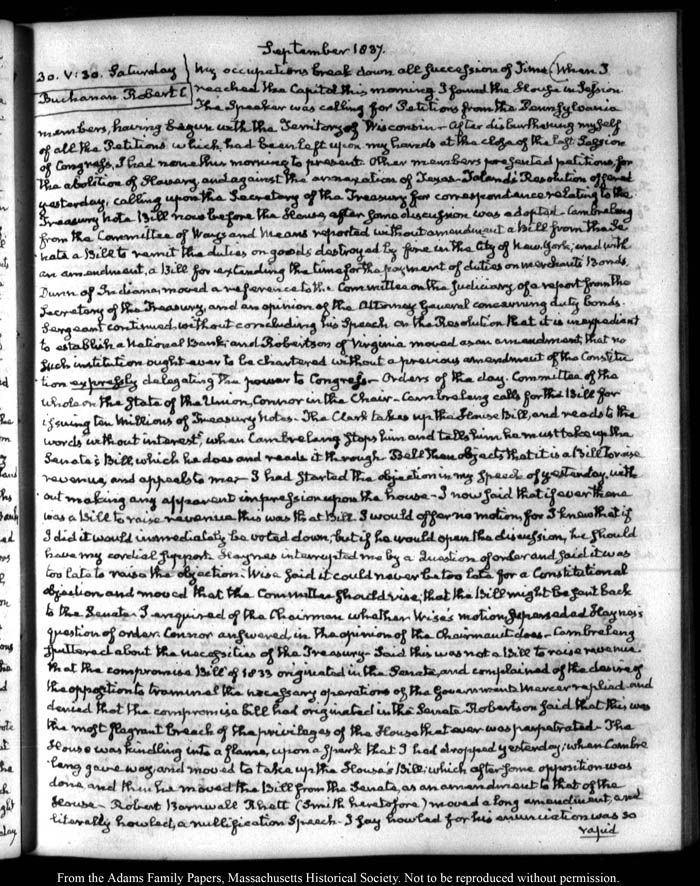 September 1837.
30. V:30. Saturday
Buchanan Robert C
My occupations break down all succession of Time. When I
reached the Capitol this morning I found the House in Session
The Speaker was calling for Petitions from the Pennsylvania
members, having begun with the Territory of Wisconsin – After disburthening myself
of all the Petitions which had been left upon my hands at the close of the last Session
of Congress, I had none this morning to present. Other members presented petitions, for
the abolition of Slavery and against the annexation of Texas – Toland's Resolution offered
yesterday, calling upon the Secretary of the Treasury for correspondence relating to the
Treasury Note Bill now before the House, after some discussion was adopted – Cambreleng
from the Committee of Ways and Means reported without amendment a Bill from the Se-
nate a Bill to remit the duties on goods destroyed by fire in the City of New-York; and with
an amendment, a Bill for extending the time for the payment of duties on merchants Bonds.
Dunn of Indiana, moved a reference to the Committee on the Judiciary of a report from the
Secretary of the Treasury, and an opinion of the Attorney General concerning duty bonds.
Sergeant continued, without concluding his Speech on the Resolution that it is inexpedient
to establish a National Bank; and Robertson of Virginia moved as an amendment, that no
such institution ought ever to be chartered without a previous amendment of the Constitu-
tion expressly delegating the power to Congress – Orders of the day. Committee of the
whole on the State of the Union, Connor in the Chair – Cambreleng calls for the Bill for
issuing ten Millions of Treasury Notes. The Clerk takes up the House Bill, and reads to the
words "without interest", when Cambreleng stops him and tells him he must take up the
Senate's Bill, which he does and reads it through. Bell then objects that it is a Bill to raise
revenue, and appeals to me – I had started the objection in my Speech of yesterday, with-
out making any apparent impression upon the house – I now said that if ever there
was a Bill to raise revenue this was that Bill. I would offer no motion, for I knew that if
I did it would immediately be voted down; but if he would open the discussion, he should
have my cordial support. Haynes interrupted me by a question of order and said it was
too late to raise the objection. Wise said it could never be too late for a Constitutional
objection and moved that the Committee should rise, that the Bill might be sent back
to the Senate. I enquired of the Chairman whether Wise's motion superseded Haynes's
question of order. Connor answered, in the opinion of the Chairman it does – Cambreleng
sputtered about the necessities of the Treasury – Said this was not a Bill to raise revenue
that the compromise Bill of 1833 originated in the Senate, and complained of the desire of
the opposition to trammel the necessary operations of the Government. Mercer replied and
denied that the compromise bill had originated in the Senate Robertson said that this was
the most flagrant breach of the privileges of the House that ever was perpetrated – The
House was kindling into a flame, upon a spark that I had dropped yesterday; when Cambre-
leng gave way, and moved to take up the House's Bill; which after some opposition was
done, and then he moved the Bill from the Senate, as an amendment to that of the
House – Robert Barnwall Rhett (Smith heretofore) moved a long amendment, and
literally howled, a nullification Speech – I say howled for his enunciation was so
rapid
From the Adams Family Papers, Massachusetts Historical Society. Not to be reproduced without permission.